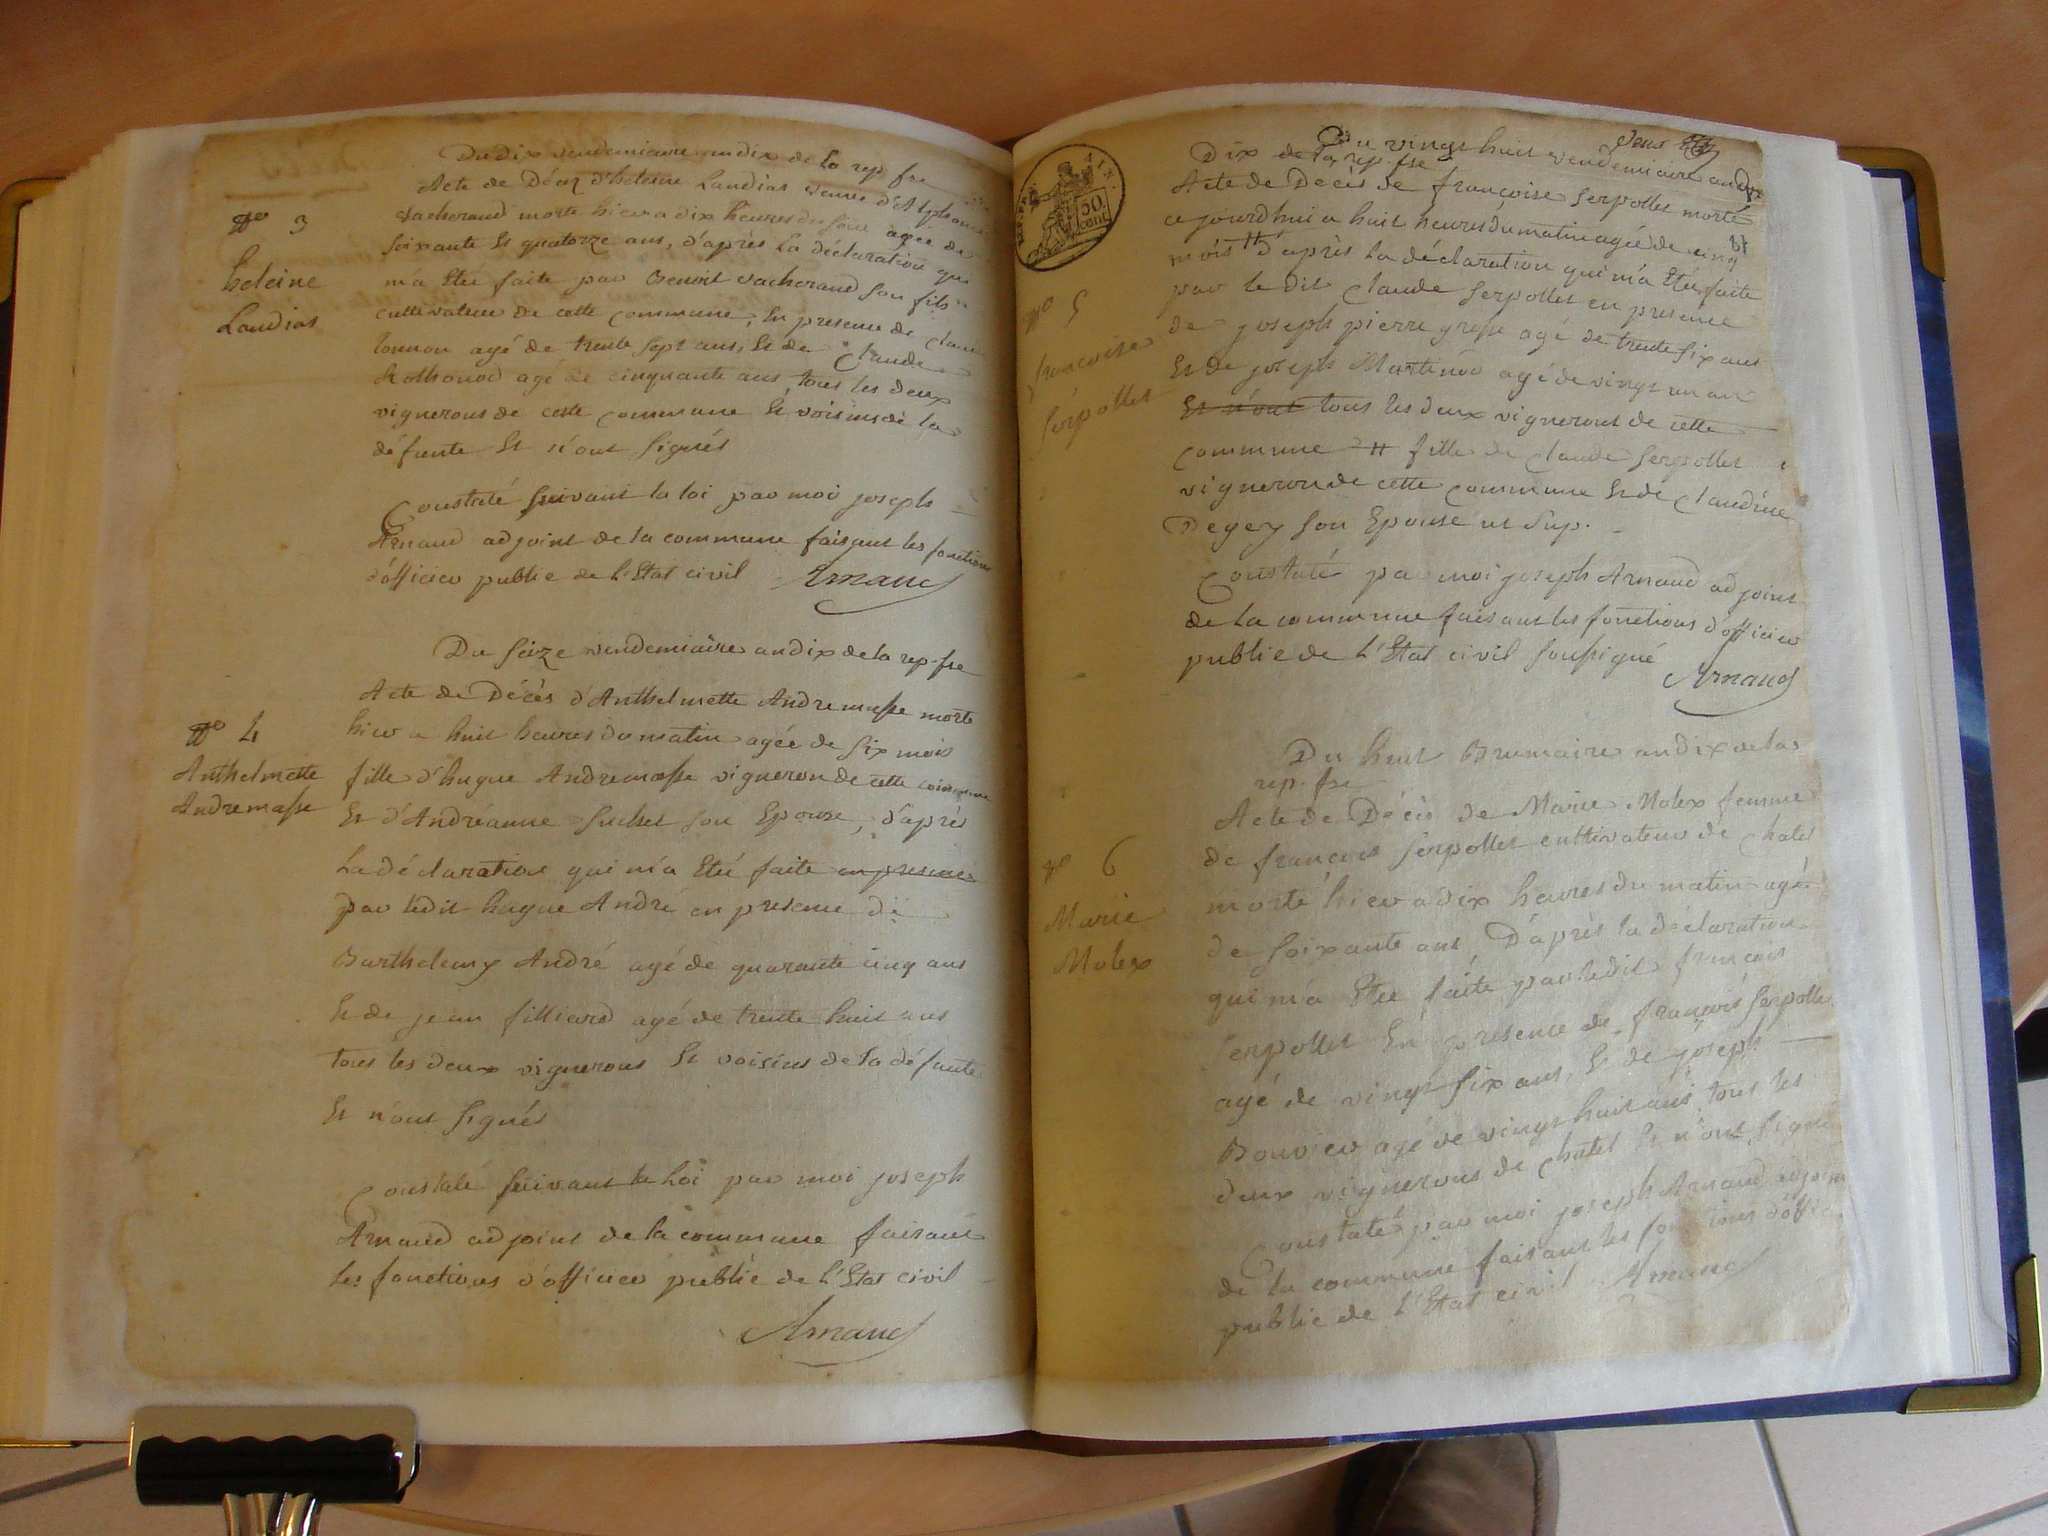 Du dix vendemiaire an dix de la rep fse
Acte de Décez d'heleine Landias veuve d'Alphonse
Vacherand morte hier a dix heures du soir agée de
soixante Et quatorze ans, d'après La déclaration qui
m'a Etée faite par Benoit Vacherand son fils
cultivateur de cette commune, En presence de Claude
tonnon agé de trente sept ans, Et de Claude
Rothonod agé de cinquante ans tous les deux
vignerons de cette commune Et voisins de la
défunte Et n'ont signés
Constaté suivant la loi par moi joseph
Arnaud adjoint de la commune faisant les fonctions
d'officier public de L'Etat civil Arnaud
No 3
heleine
Landias
Du seize vendemiaire an dix de la rep. fse
Acte de Décès d'Anthelmette Andremasse morte
hier a huit heures du matin agée de six mois
fille d'hugue Andremasse vigneron de cette commune
Et d'Andréanne Suchet son Epouse, d'après
La déclaration qui m'a Etée faite en presence
par ledit hugue André en presence de
Barthelemy André agé de quarante cinq ans
Et de jean filliard agé de trente huit ans
tous les deux vignerons Et voisins de la défunte
Et n'ont signés
Constaté suivant la Loi par moi joseph
Arnaud adjoint de la commune faisant
les fonctions d'officier public de L'Etat civil
Arnaud
No 4
Anthelmette
Andremasse
deux
Du vingt huit vendemiaire an dix
Dix de la rep. fse
Acte de Décès de françoise Serpollet morte
ce jourd'hui a huit heures du matin agée de cinq
mois # d'après La déclaration qui m'a Etée faite
par le dit Claude Serpollet en presence
de joseph pierre grosse agé de trente six ans
Et de joseph Martinod agé de vingt un an
Et n'ont tous les deux vignerons de cette
commune # fille de Claude Serpollet
vigneron de cette commune Et de Claudine
Degey son Epouse ut sup.
Constaté par moi joseph Arnaud adjoint
de la commune faisant les fonctions d'officier
public de L'Etat civil soussigné
Arnaud
50
cent
No 5
françoise
Serpollet
Du huit Brumaire an dix de la
rep. fse
Acte de Décès de Marie Molex femme
de françois Serpollet cultivateur de Chatel
morte hier a dix heures du matin agée
de soixante ans, D'après la déclaration
qui m'a Etée faite par ledit françois
Serpollet En presence de françois Serpollet
agé de vingt six ans, Et de joseph
Bouvier agé de vingt huit ans tous les
deux vignerons de Chatel Et n'ont signé
Constaté par moi joseph Arnaud adjoint
de la commune faisant les fonctions d'officier
public de L'Etat civil Arnaud
No 6
Marie
Molex